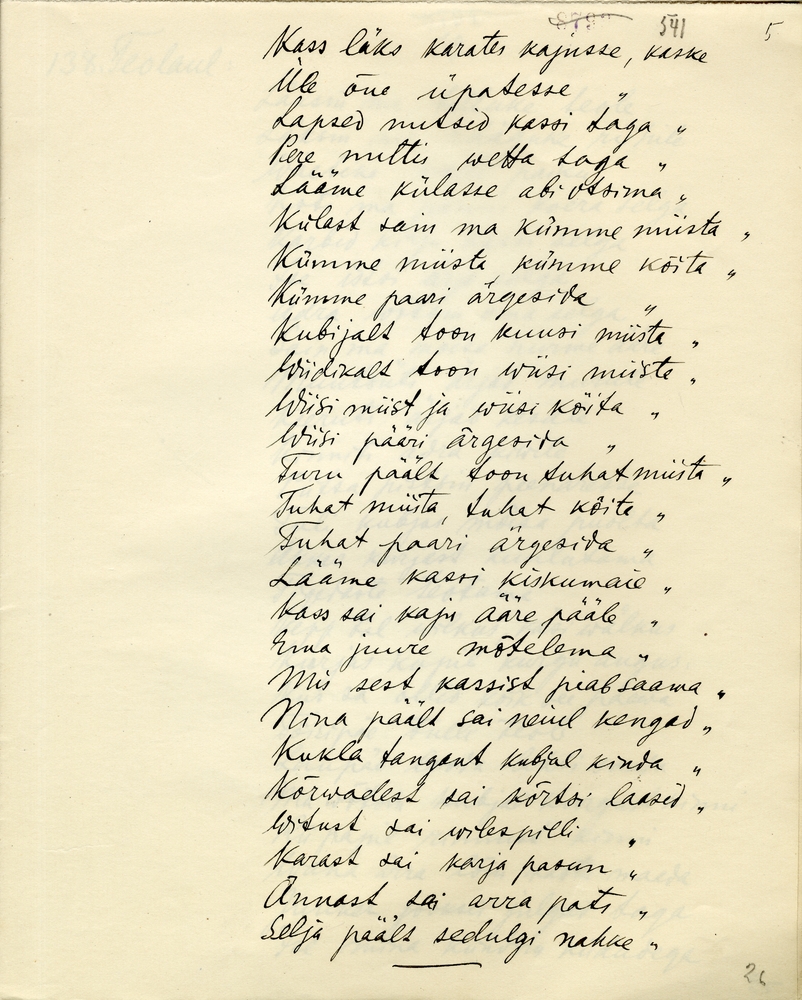 541 5
Kass läks karates kajusse, kaske
Üle õue üpatesse "
Lapsed nutsid kassi taga "
Pere nuttis wetta taga "
Lääme külasse abi otsima "
Külast sain ma kümme miista "
Kümme miista, kümme köita "
Kümme paari ärgesida "
Kubijalt toon kuusi miista "
Wiidikalt toon wiisi miista "
Wiisi miist ja wiisi köita "
Wiisi pääri ärgesida "
Turu päält toon tuhat miista "
Tuhat miista, tuhat köita "
Tuhat paari ärgesida "
Lääme kassi kiskumaie "
Kass sai kaju ääre pääle "
Ema juure mõtelema "
Mis sest kassist piab saama "
Nina päält sai neiul kengad "
Kukla tangant kubjal kinda "
Kõrwadest sai kõrtsi laasid "
Witust sai wilespilli "
Karast sai karja pasun "
Ännast sai arra pats "
Selja päält sedulgi nahke "
26